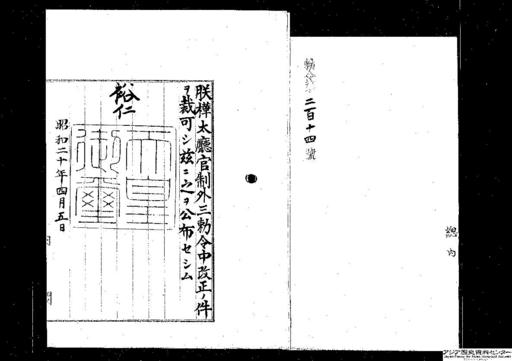 勅令第二百十四號
朕樺太廳官制外三勅令中改正ノ件
ヲ裁可シ茲ニ之ヲ公布セシム
裕仁
天皇御璽
昭和二十年四月五日
内閣
アジア歴史資料センター